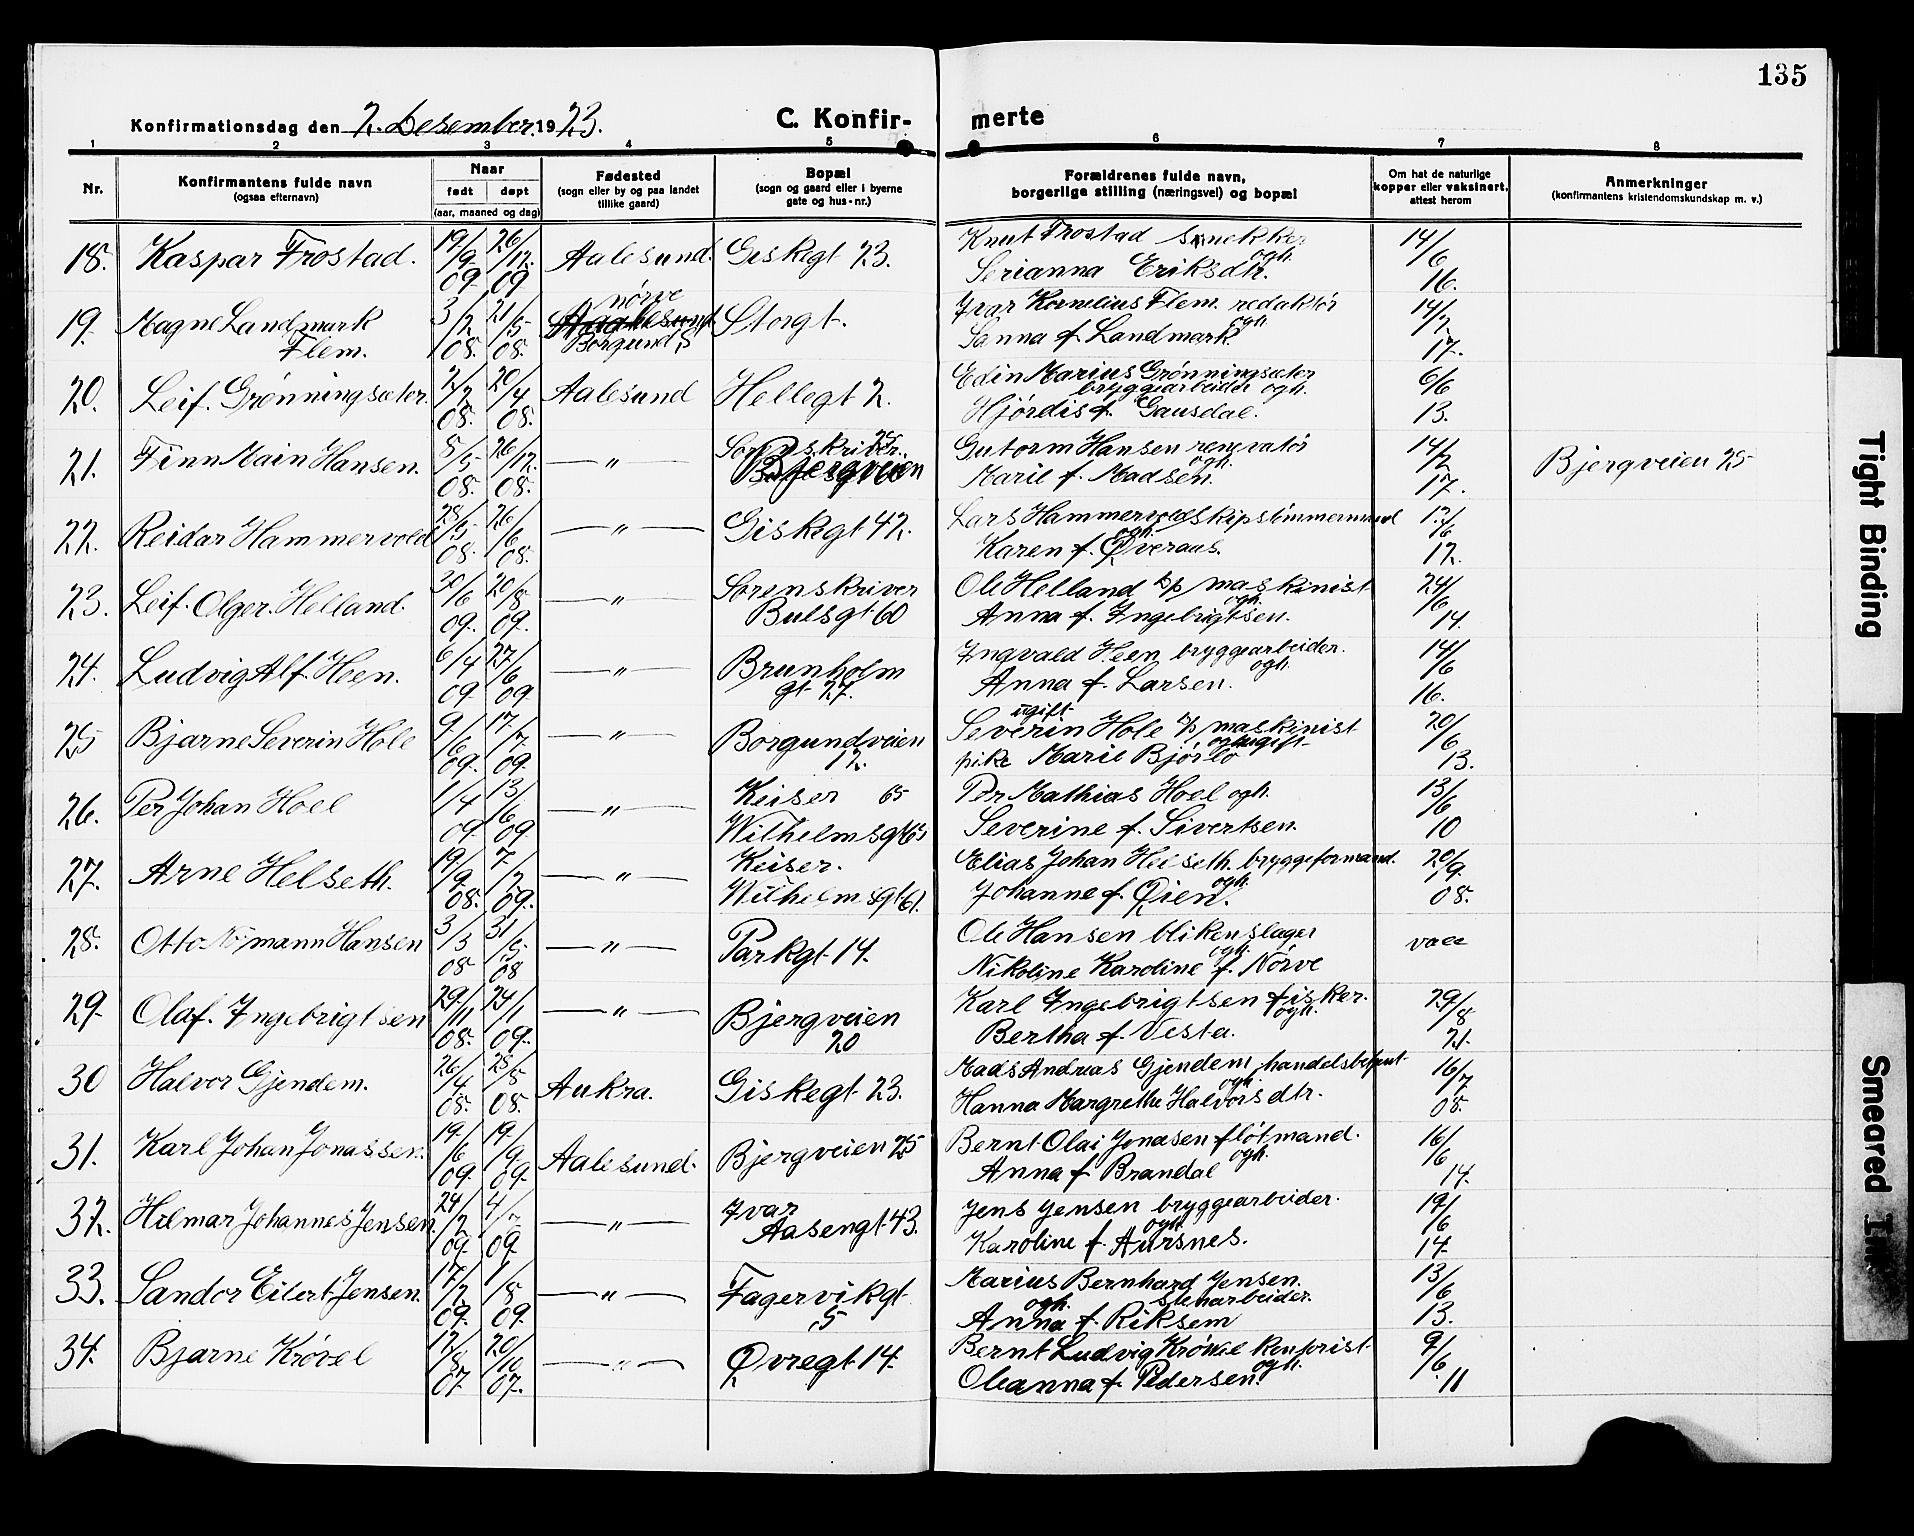 135
Konfirmationsdag den 2. Desember. 1923.
C. Konfir-merte
1 2 3 4 5 6 7 8
Nr.
Konfirmantens fulde navn
(ogsaa efternavn)
Naar
født døpt
(aar, maaned og dag)
Fødested
(sogn eller by og paa landet
tillike gaard)
Bopæl
(sogn og gaard eller i byerne
gate og hus-nr.)
Forældrenes fulde navn,
borgerlige stilling (næringsvei) og bopæl
Om hat de naturlige
kopper eller vaksinert,
attest herom
Anmerkninger
(konfirmantens kristendomskundskap m. v.)
18. Kaspar Frostad. 19/9 09 26/12. 09 Aalesund. Giskegt 23. Knut Frostad snekker ogh. Serianna Eriksdtr. 14/6 16.
19. Magne Landmark Flem. 3/2 08. 21/5 08. nørve Borgund S Storgt. Ivar Kornelius Flem. redaktør ogh. Sanna f. Landmark. 14/7 17.
20. Leif. Grønningsæter. 2/2 08. 20/4 08. Aalesund Hellegt 2. Edin Marius Grønningsæter bryggearbeider ogh. Hjørdis f. Gausdal. 6/6 13.
21. Finn Main Hansen. 8/5 08. 26/12. 08. — " — Bjergveien Gutorm Hansen renovatør ogh. Marie f. Madsen. 14/2 17. Bjergveien 25
22. Reidar Hammervold 28/3 08. 26/6 08. — " — Giskegt 42. Lars Hammervold skipstimmermand ogh. Karen f. Øveraas. 12/6 12.
23. Leif. Olger. Helland. 30/6 09. 20/8 09. — " — Sorenskriver Bulsgt 60 Ole Helland D/p maskinist ogh. Anna f. Ingebrigtsen. 24/6 14.
24. Ludvig Alf. Heen. 6/4 09. 27/6 09 — " — Brunholm gt 27. Ingvald Heen bryggearbeider. ogh. Anna f. Larsen. 14/6 16.
25 Bjarne Severin Hole 9/6 09. 17/7 09. — " — Borgundveien 12. ugift Severin Hole D/p maskinist og ugift pike Marie Bjørlo 20/6 13.
26. Per Johan Hoel 1/4 09. 13/6 09 — " — Keiser 65 Wilhelmsgt 65 Per Mathias Hoel ogh. Severine f. Sivertsen. 13/6 10
27. Arne Helseth. 19/9 08. 7/2 09. — " — Keiser. Wilhelmsgt 61. Elias Johan Helseth. bryggeformand. ogh. Johanne f. Øien. 20/9. 08.
28. Otto Normann Hansen 3/3 08 31/5 08 — " — Parkgt 14. Ole Hansen blikenslager ogh. Nikoline Karoline f. Nørve vacc
29. Olaf. Ingebrigtsen 29/11 08. 24/1 09. — " — Bjergveien 20 Karl Ingebrigtsen fisker. ogh. Bertha f. Vesta. 29/8 21.
30 Halvor Gjendem. 26/4 08. 28/5 08. Aukra. Giskegt 23. Mads Andreas Gjendem, handelsbetjent ogh. Hanna Margrethe Halvorsdtr. 16/7 08.
31. Karl Johan Jonassen. 19/6 09. 19/9 09. Aalesund. Bjergveien 25 Bernt Olai Jonasen fløtmand. ogh. Anna f. Brandal 16/6 14.
32. Hilmar Johannes Jensen. 24/2 09. 4/7 09. — " — Ivar Aasengt 43. Jens Jensen bryggearbeider. ogh. Karoline f. Aursnes. 19/6 14
33. Sandor Eilert Jensen. 17/2 09. 1/8 09. — " — Fagervikgt 5 Marius Bernhard Jensen. ogh. stenarbeider. Anna f. Riksem 13/6 13.
34. Bjarne Krøvel 12/8 07. 20/10 07. — " — Øvregt 14. Bernt Ludvig Krøvel ogh. Oleanna f. Pedersen. 9/6. 11
Tight Binding
Smeared